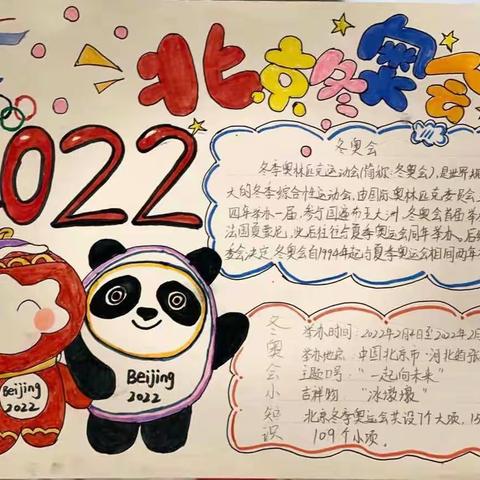 北京冬奥会
2022
冬奥会
冬季奥林匹克运动会(简称:冬奥会),是世界规
大的冬季综合性运动会,由国际奥林匹克委员会
四年举办一届,参与国遍布五大洲,冬奥会首届举办
法国夏慕尼,此后往往与夏季奥运会同年举办。后经
委会决定,冬奥会自1994年起与夏季奥运会相间两年
Beijing
2022
Beijing
2022
冬奥会小知识
举办时间:2022年2月4日至2022年2月
举办地点:中国北京市·河北省张
主题口号:“一起向未来”
吉祥物:“冰墩墩”
北京冬季奥运会共设7个大项,15
109个小项。